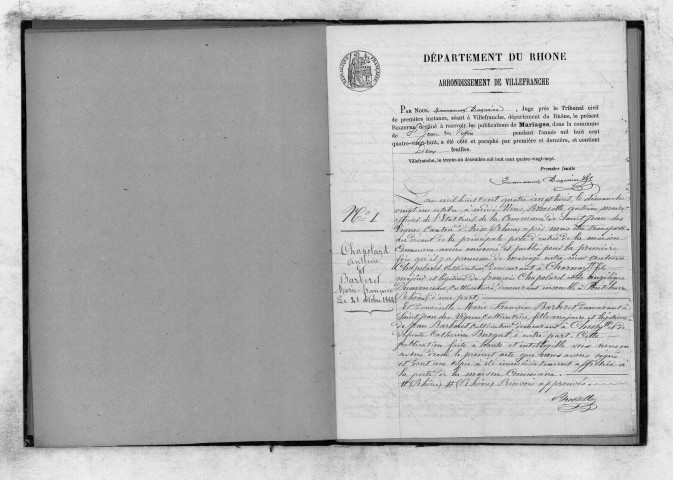 RÉPUBLIQUE FRANÇAISE
DÉPARTEMENT DU RHONE
ARRONDISSEMENT DE VILLEFRANCHE
PAR NOUS, Juge près le Tribunal civil
de première instance, séant à Villefranche, département du Rhône, le présent
REGISTRE destiné à recevoir les publications de Mariages, dans la commune
de St Jean des Vignes pendant l'année mil huit cent
quatre-vingt-huit, a été coté et paraphé par première et dernière, et contient
Deux feuilles.
Villefranche, le trente-un décembre mil huit cent quatre-vingt-sept.
Première feuille
No 1
Chapolard
Antoine
et
Barberet
Marie françoise
Le 21 octobre 1888
L'an mil huit cent quatre vingt huit, le dimanche
vingt un octobre, à midi Nous maire
officier de l'Etat civil de la Commune de Saint Jean des
Vignes Canton d'Anse, Rhône, après nous être transporté
au devant de la principale porte d'entrée de la maison
Commune avons annoncé et publié pour la première
fois qu'il y a promesse de mariage entre
Chapolard cultivateur demeurant à Charnay fils
majeur et légitime de françois Chapolard et de Angélique
cultivateurs demeurant ensemble à
d'une part
Et Demoiselle Marie françoise Barberet demeurant à
Saint Jean des Vignes cultivatrice, fille majeure et légitime
de Jean Barberet cultivateur demeurant à et de
Catherine d'autre part. Cette
publication faite à haute et intelligible voix nous en
avons dressé le présent acte que nous avons signé
et dont une copie a été immédiatement affichée à
la porte de la maison Commune.
# (Rhône) # (Rhône) Renvois approuvés.